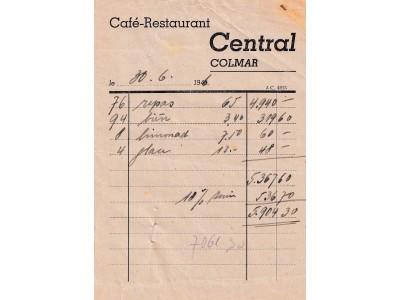 Café-Restaurant
Central
COLMAR
le 30. 6. 194
A.C. 4855
76 repas 65 4.940 —
94 bièr 3,40 319 60
8 limonad 7.50 60 —
4 glace 12.— 48 —
5.367 60
10% 536 70
5.904 30
7061 30